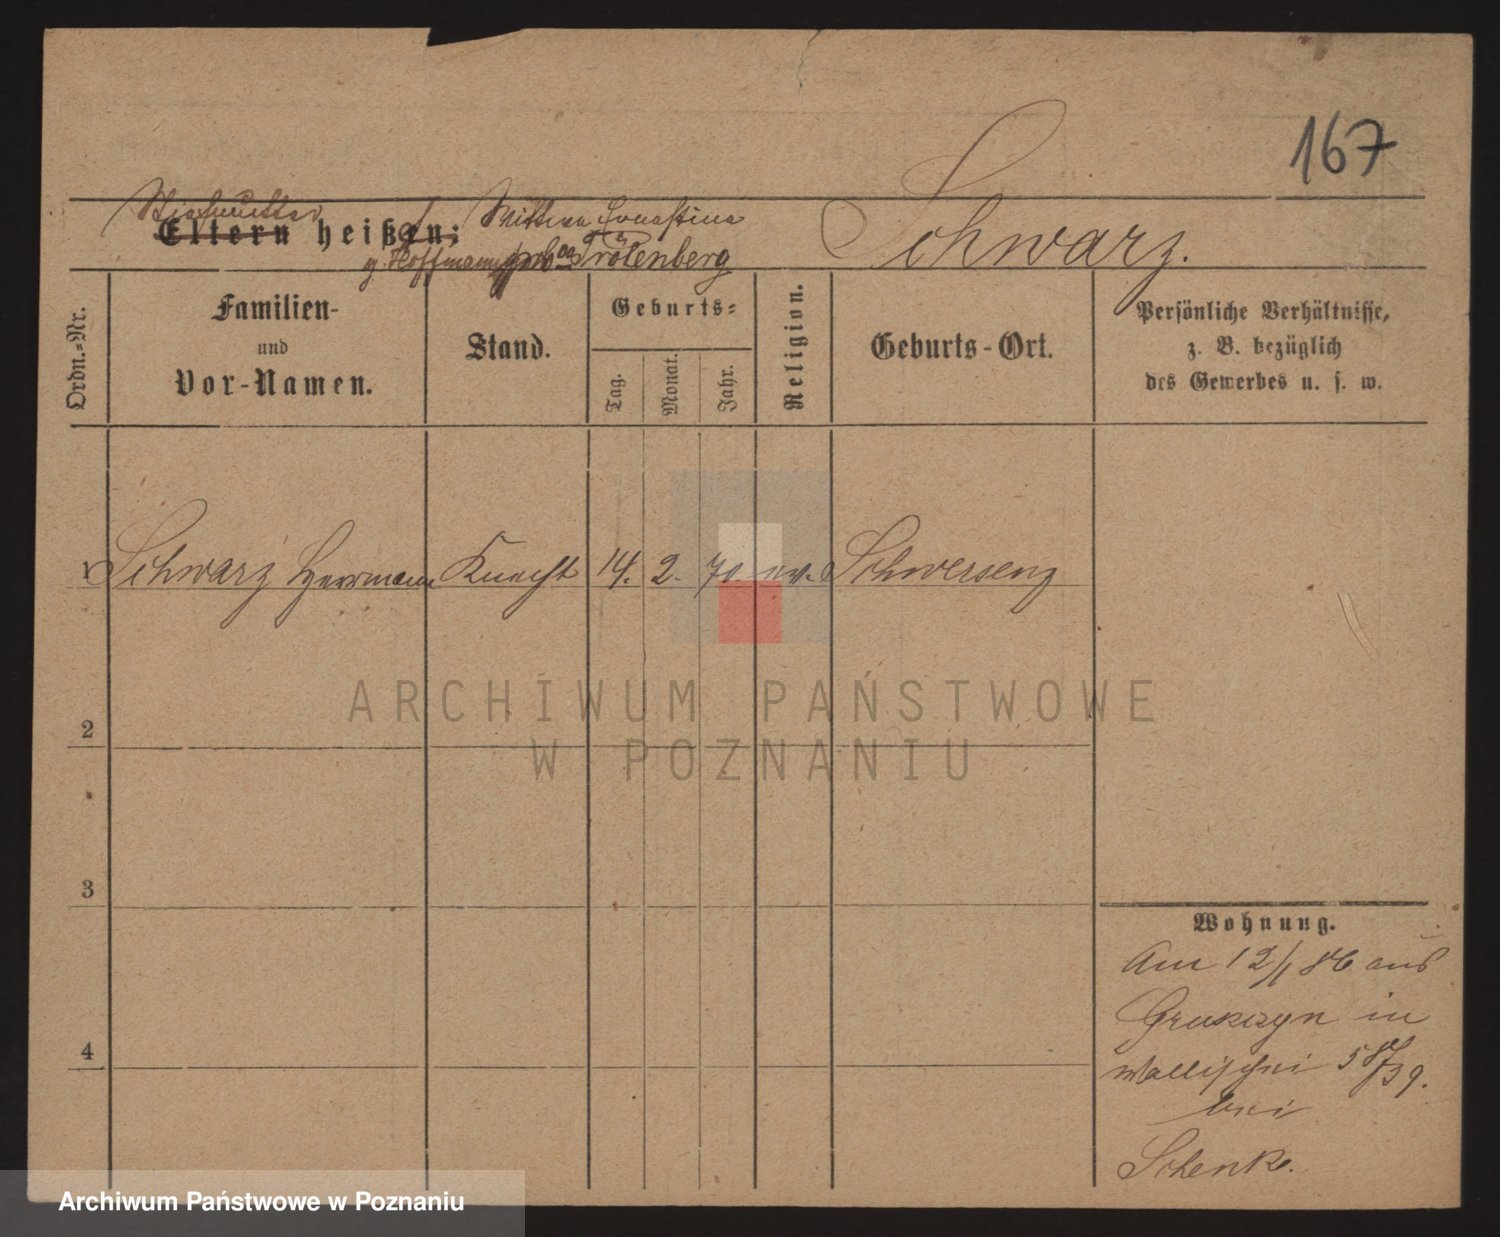 167
Stiefmutter Wittwe Ernestine
Eltern heißen: Schwarz.
g. Hoffmann geb. Prölenberg
Ordn.-Nr.
Familien-
und
Vor-Namen.
Stand.
Geburts-
Tag.
Monat.
Jahr.
Religion.
Geburts-Ort.
Persönliche Verhältnisse,
z. B. bezüglich
des Gewerbes u. s. w.
1 Schwarz Herrmann Knecht 14. 2. 70. ev. Schwersenz
2
3
4
Wohnung.
Am 12/1 86 aus
in
Wallischei 58/39.
bei
Schenk.
ARCHIWUM PAŃSTWOWE
W POZNANIU
Archiwum Państwowe w Poznaniu